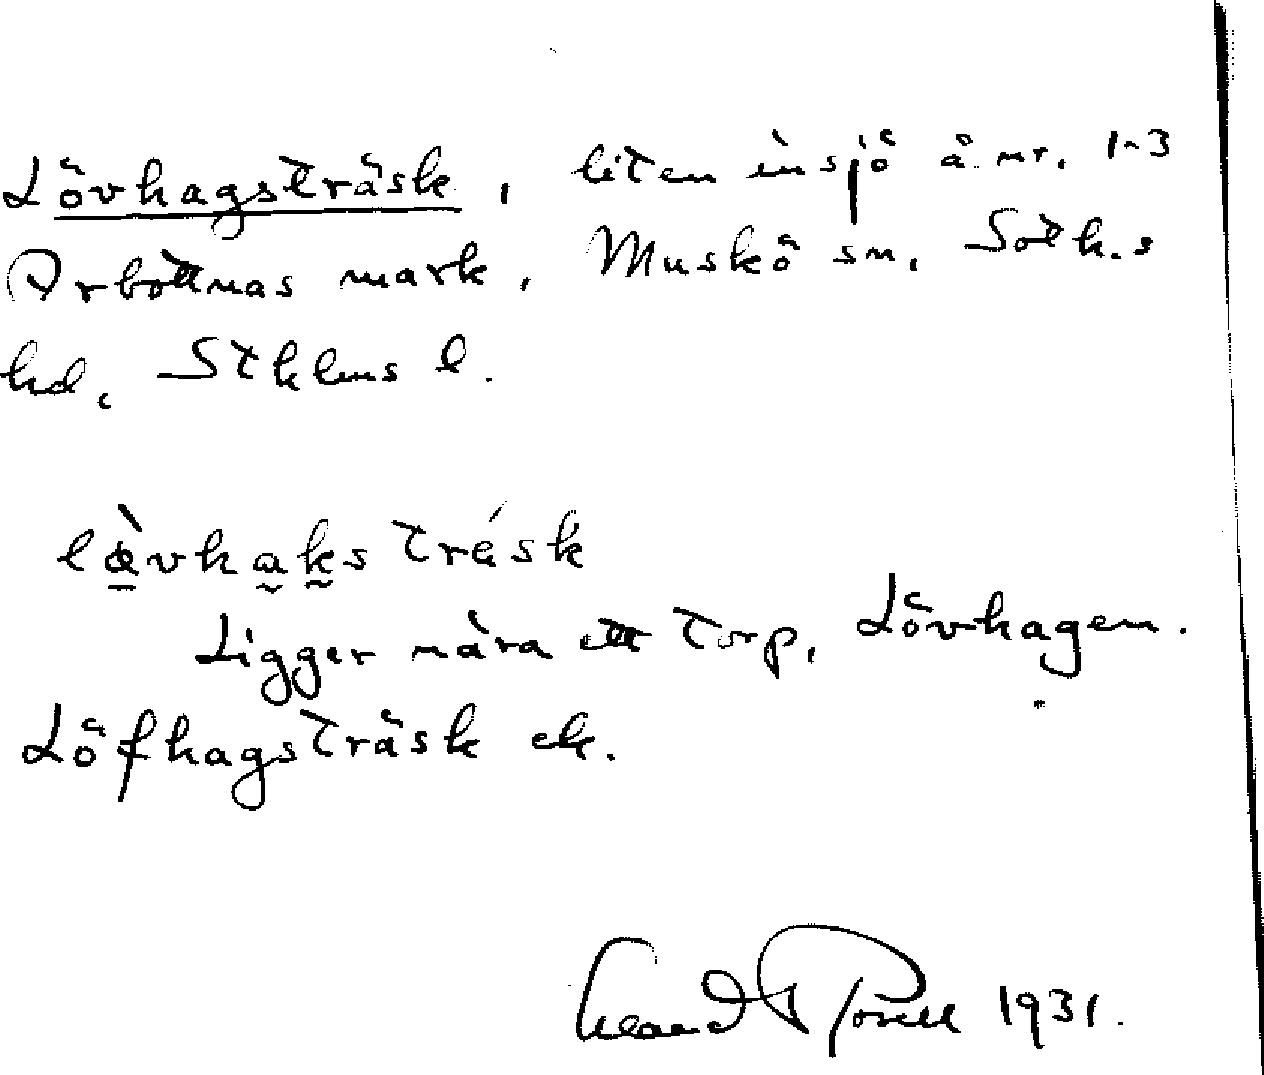 Lövhagsträsk, liten insjö å nr. 1-3
Arbottnas mark, Muskö sn, Sotk.s
hd, Sthlms l.
lǿvhakstrésk
Ligger nära ett torp, Lövhagen.
Löfhagsträsk ek.
1931.